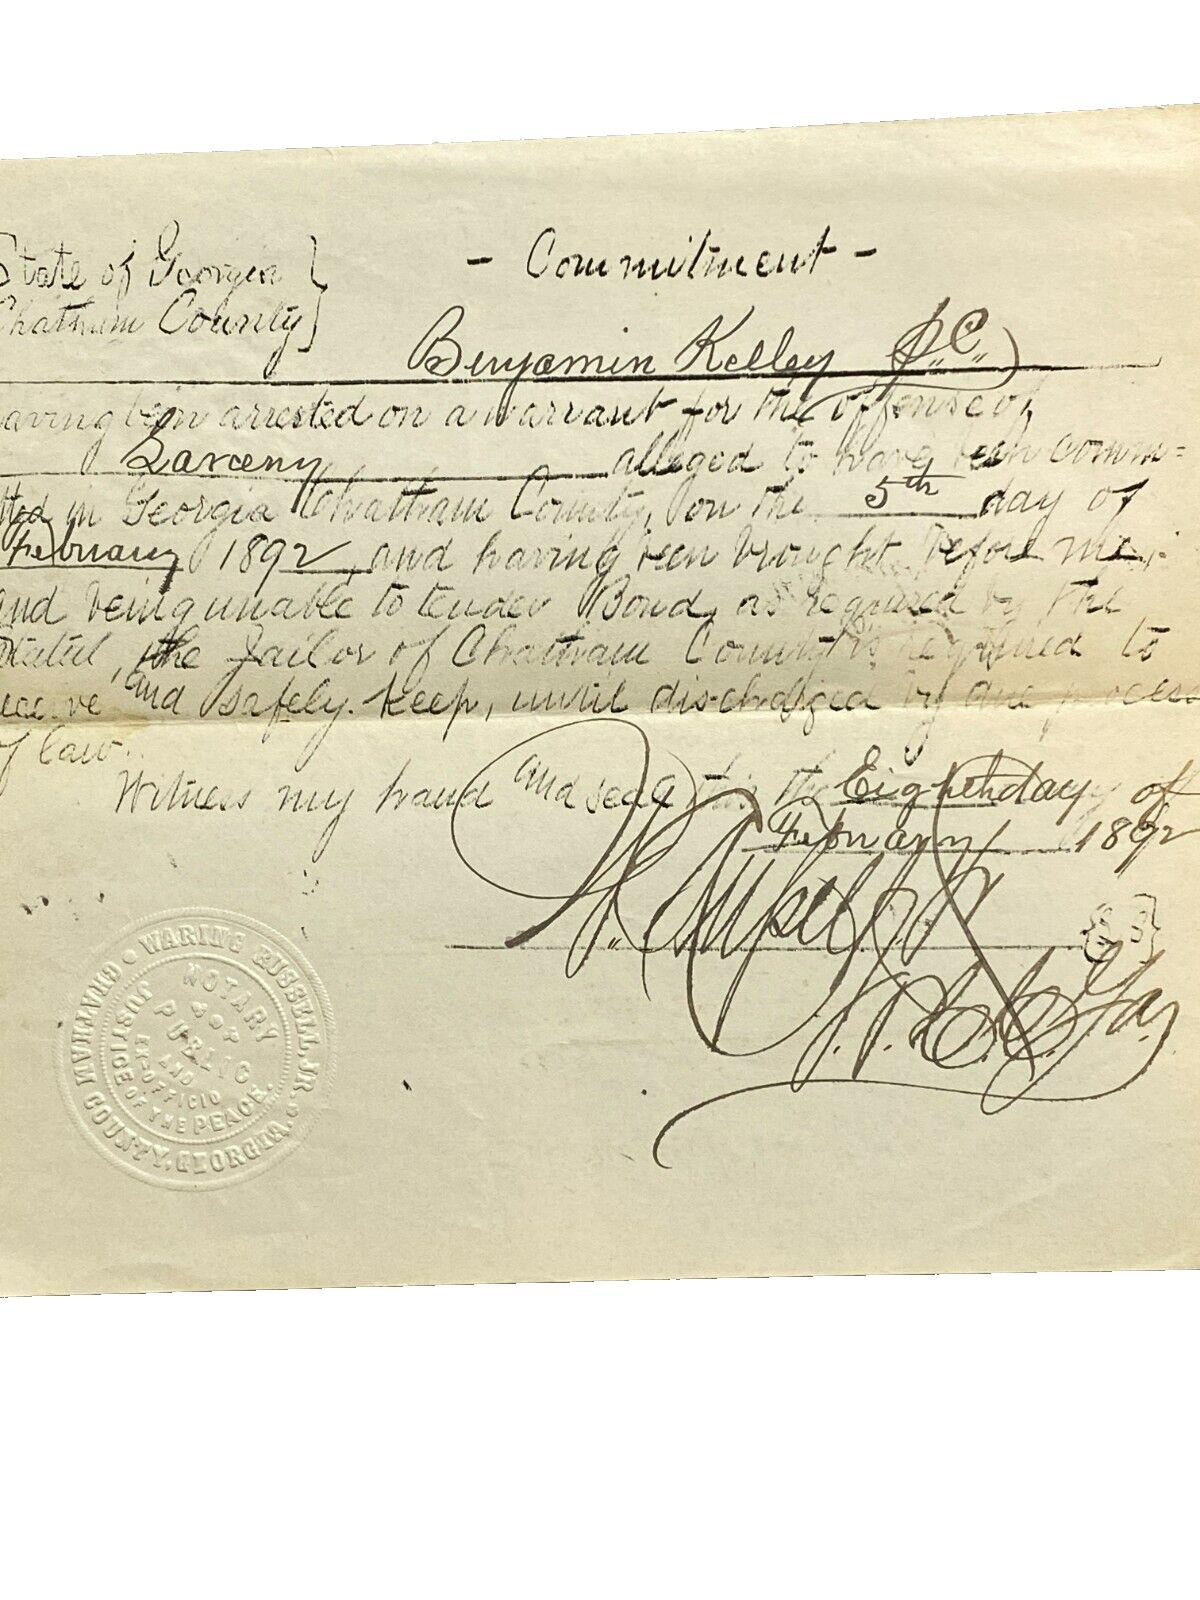 State of Georgia }
Chatham County }
- Commitment -
Benjamin Kelley
aving been arrested on a warrant for the offense of
Larceny alleged to have been comm=
tted in Georgia Chatham County, on the 5th day of
February 1892, and having been brought before me,
and being unable to tender Bond, as required by the
the Jailor of Chatham County is required to
receive and safely keep, until discharged by due process
of law.
Witness my hand and seal this the Eighth day of
February 1892
J.P. C.C. Ga.
WARING RUSSELL, JR.
CHATHAM COUNTY, GEORGIA.
NOTARY PUBLIC
AND
EX-OFFICIO
JUSTICE OF THE PEACE.